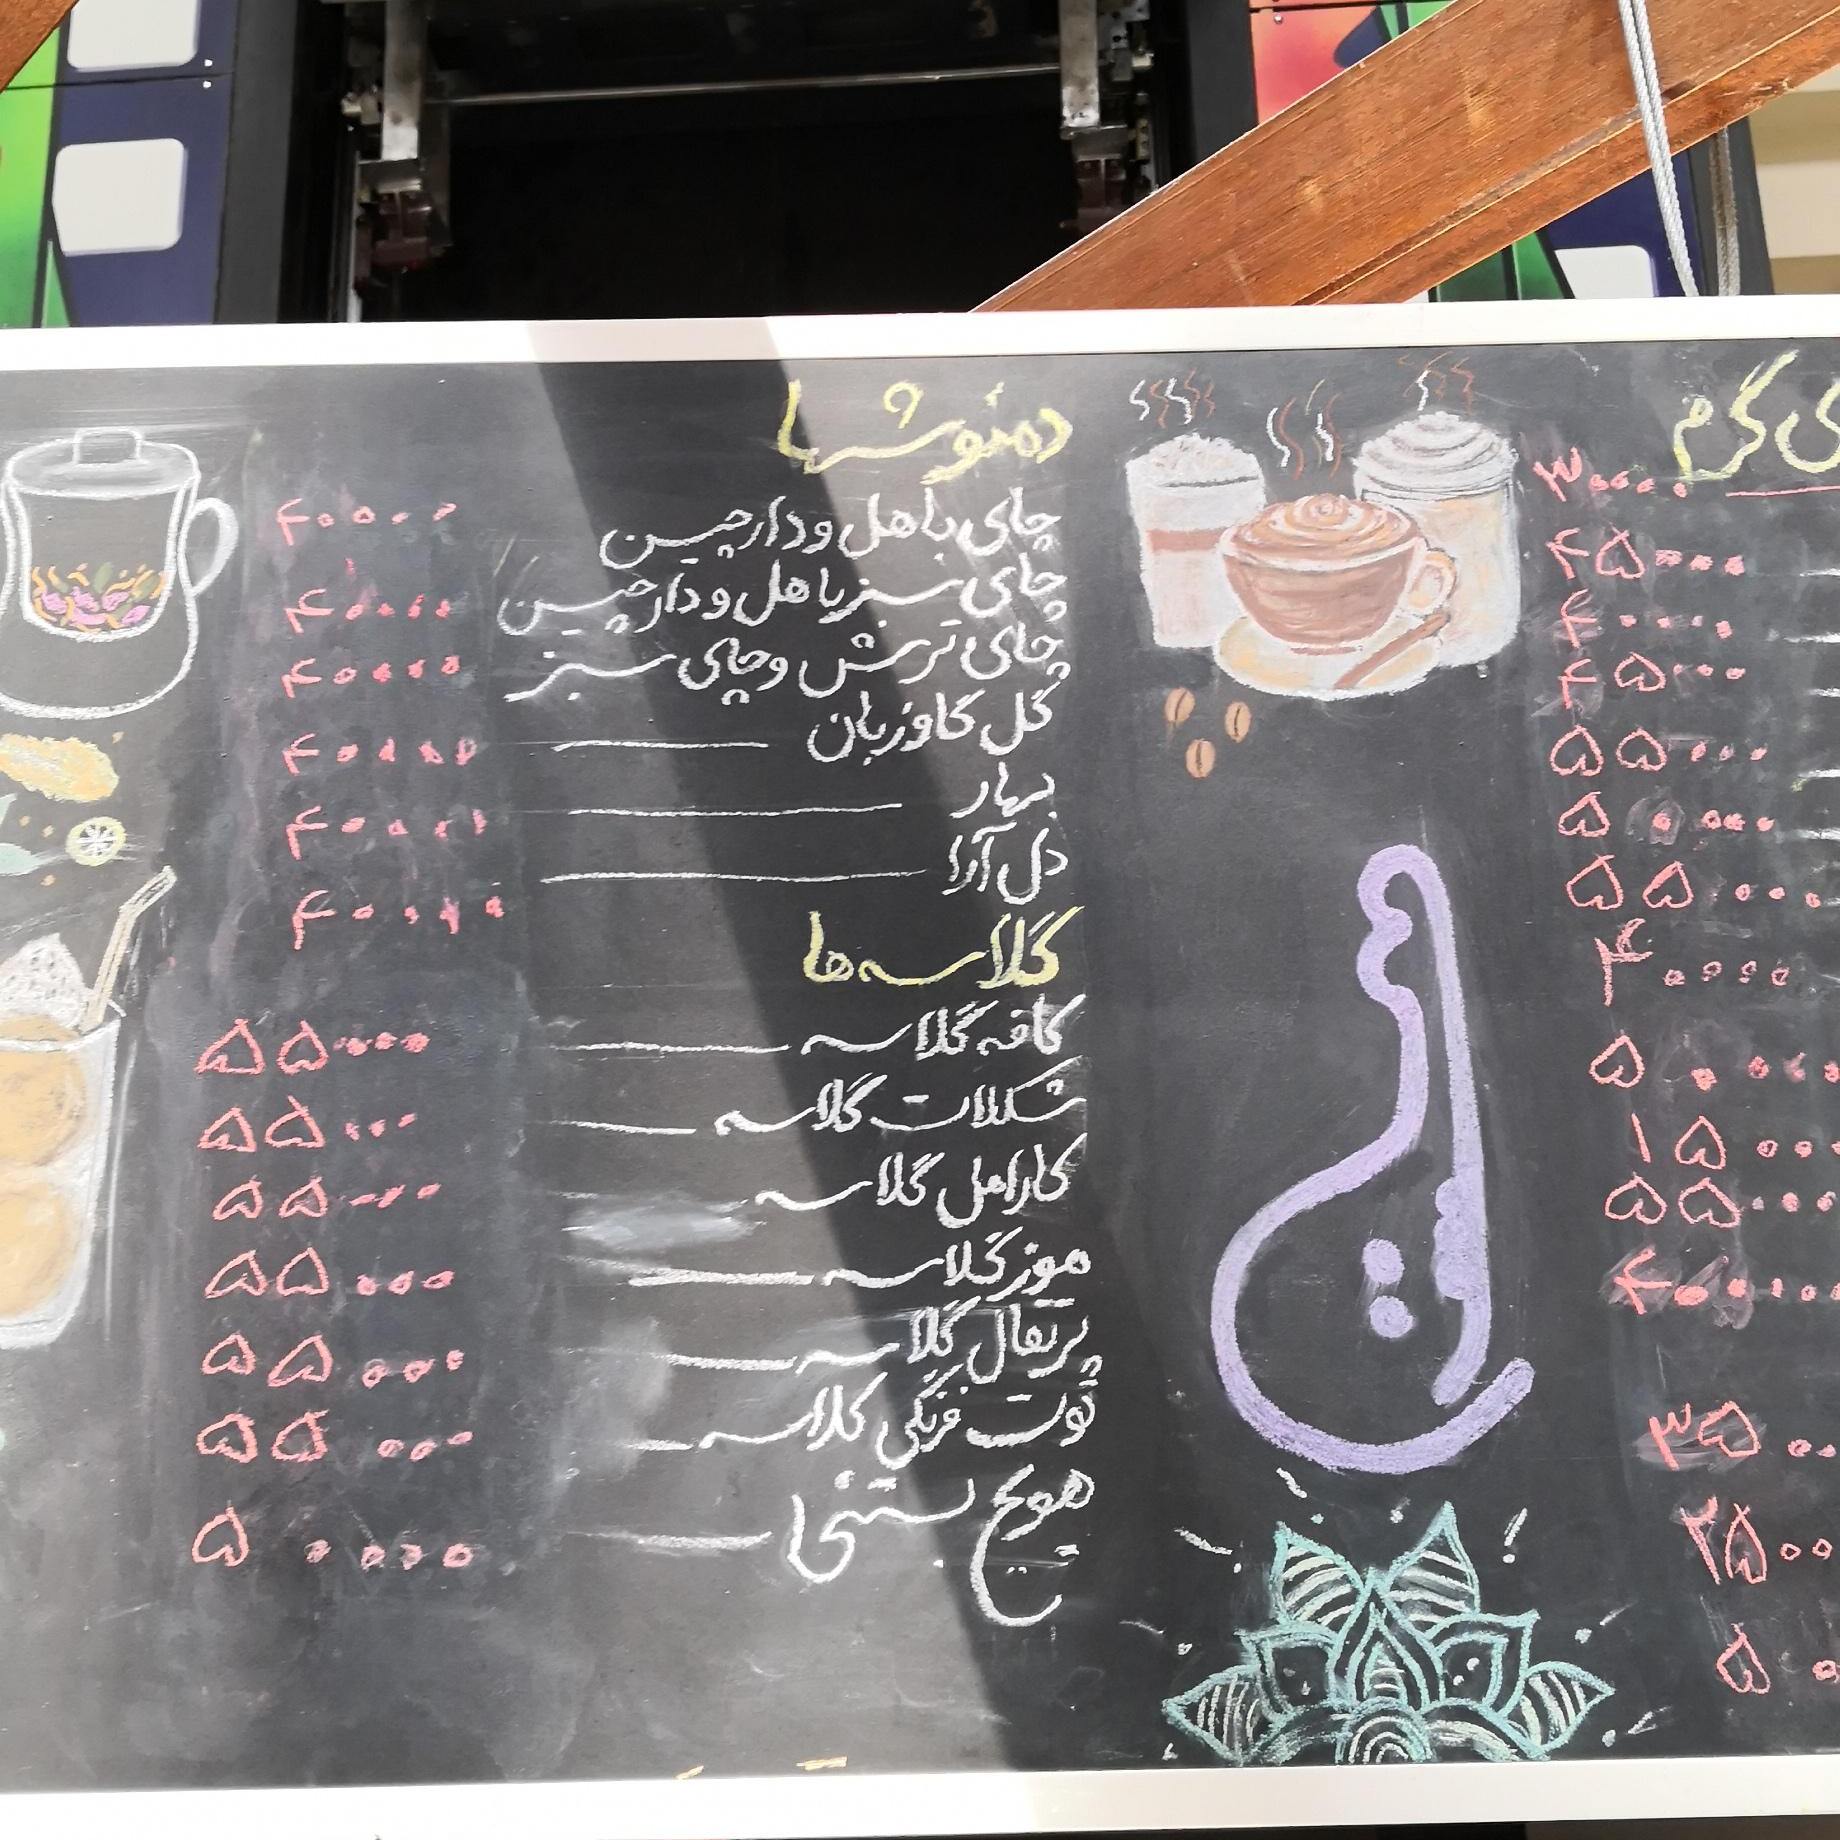 ی گرم
۳۰۰۰۰
۴۵۰۰۰
۴۰۰۰۰
۴۵۰۰۰
۵۵۰۰۰
۵۰۰۰۰
۵۵۰۰۰
۴۰۰۰۰
۵۰۰۰۰
۱۵۰۰۰
۵۵۰۰۰
۴۰۰۰۰
۳۵۰۰
۲۵۰۰
۵۰
دمنوشها
چای با هل و دارچین ۴۰۰۰۰
چای سبز با هل و دارچین ۴۰۰۰۰
چای ترش و چای سبز ۴۰۰۰۰
گل گاوزبان ۴۰۰۰۰
بهار ۴۰۰۰۰
دل آرا ۴۰۰۰۰
گلاسه ها
کافه گلاسه ۵۵۰۰۰
شکلات گلاسه ۵۵۰۰۰
کارامل گلاسه ۵۵۰۰۰
موز گلاسه ۵۵۰۰۰
پرتقال گلاسه ۵۵۰۰۰
توت فرنگی گلاسه ۵۵۰۰۰
هویج بستنی ۵۰۰۰۰